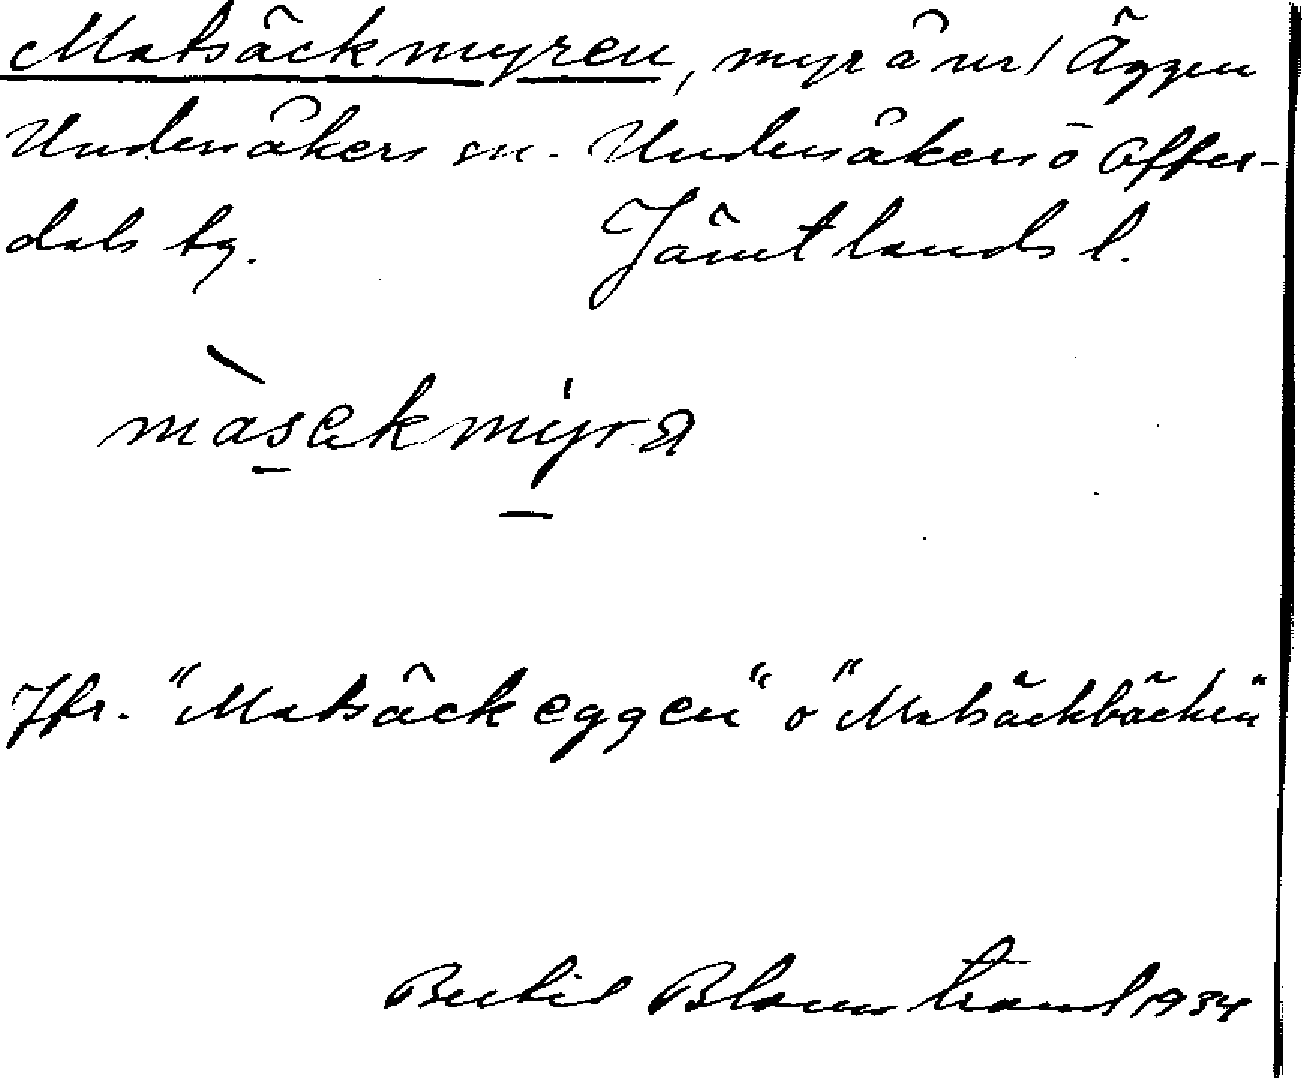 Matsäckmyren, myr å nr/ Äggen
Undersåkers sn. Undersåkers o Offer-
dals tg. Jämtlands l.
màsękmýrɑ
Jfr. "Matsäckeggen" o "Matsäckbäcken"
Bertil Blomstrand 1934